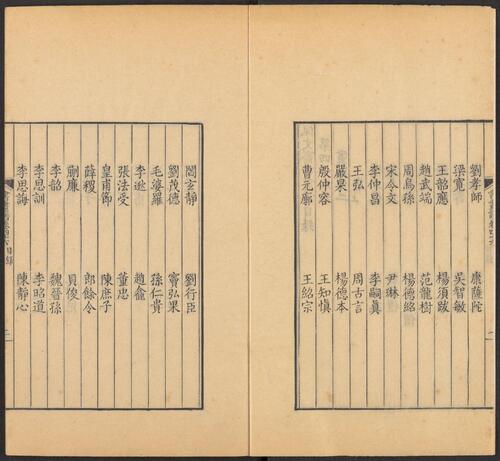 劉孝師 康薩陀
梁寬 吳智敏
王韶應 楊須跋
趙武端 范龍樹
周烏孫 楊德紹
宋令文 尹琳
李仲昌 李嗣真
王弘 周古言
嚴杲 楊德本
殷仲容 王知慎
曹元廓 王紹宗
閻玄靜 劉行臣
劉茂德 竇弘果
毛婆羅 孫仁貴
李遜 趙龕
張法受 董忠
皇甫節 陳庶子
薛稷 郎餘令
蒯廉 貝俊
李韶 魏晉孫
李思訓 李昭道
李思誨 陳靜心